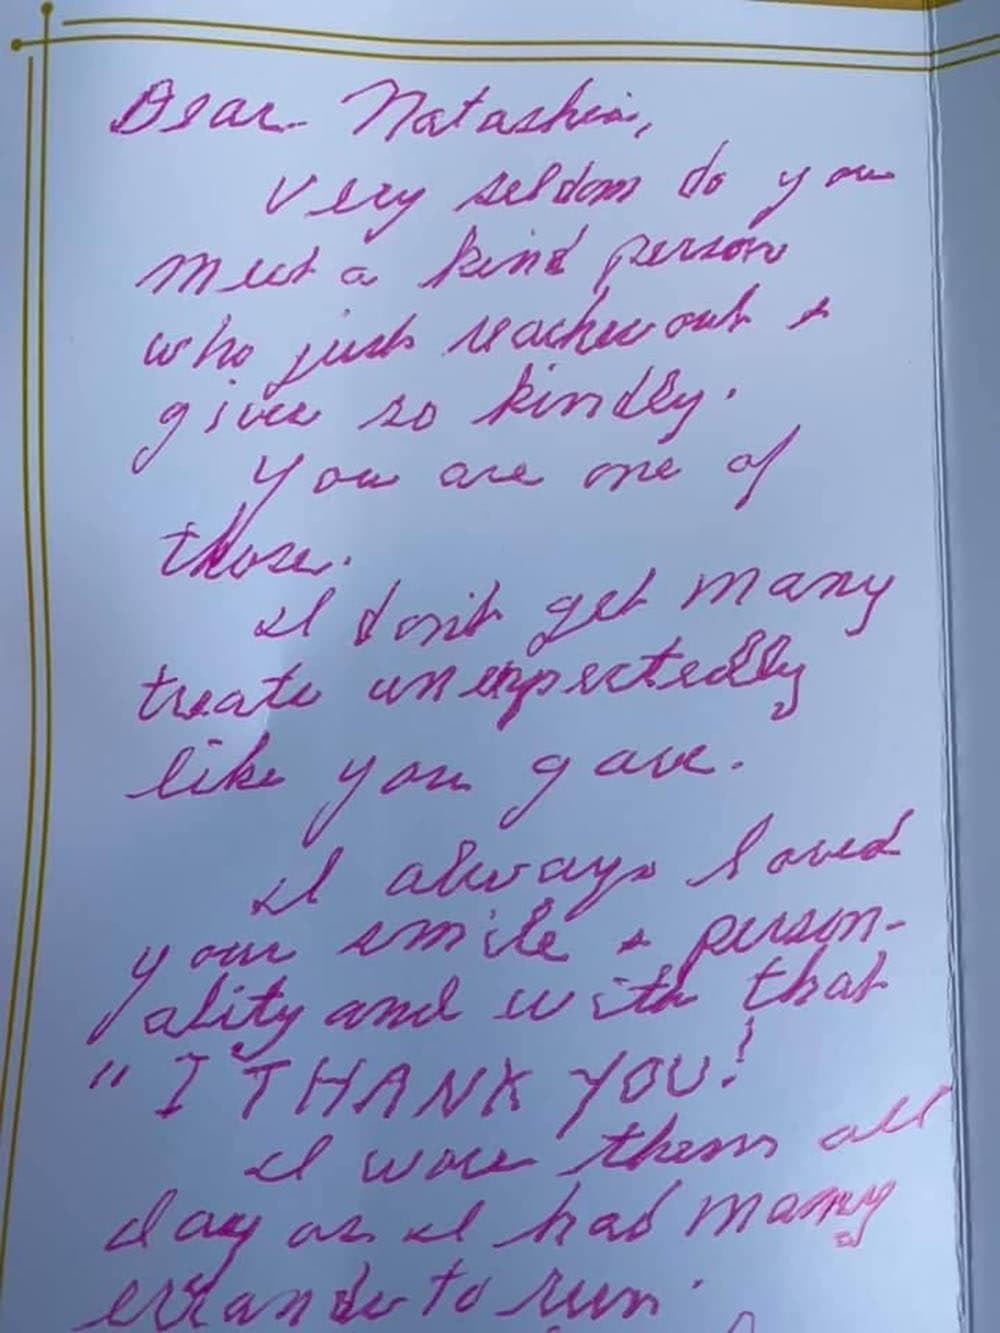 Dear Natashia,
Very seldom do you
meet a kind person
who just reaches out &
gives so kindly.
You are one of
those.
I don't get many
treats unexpectedly
like you gave.
I always loved
your smile & person-
ality and with that
"I THANK YOU!
I wore them all
day as I had many
errands to run.